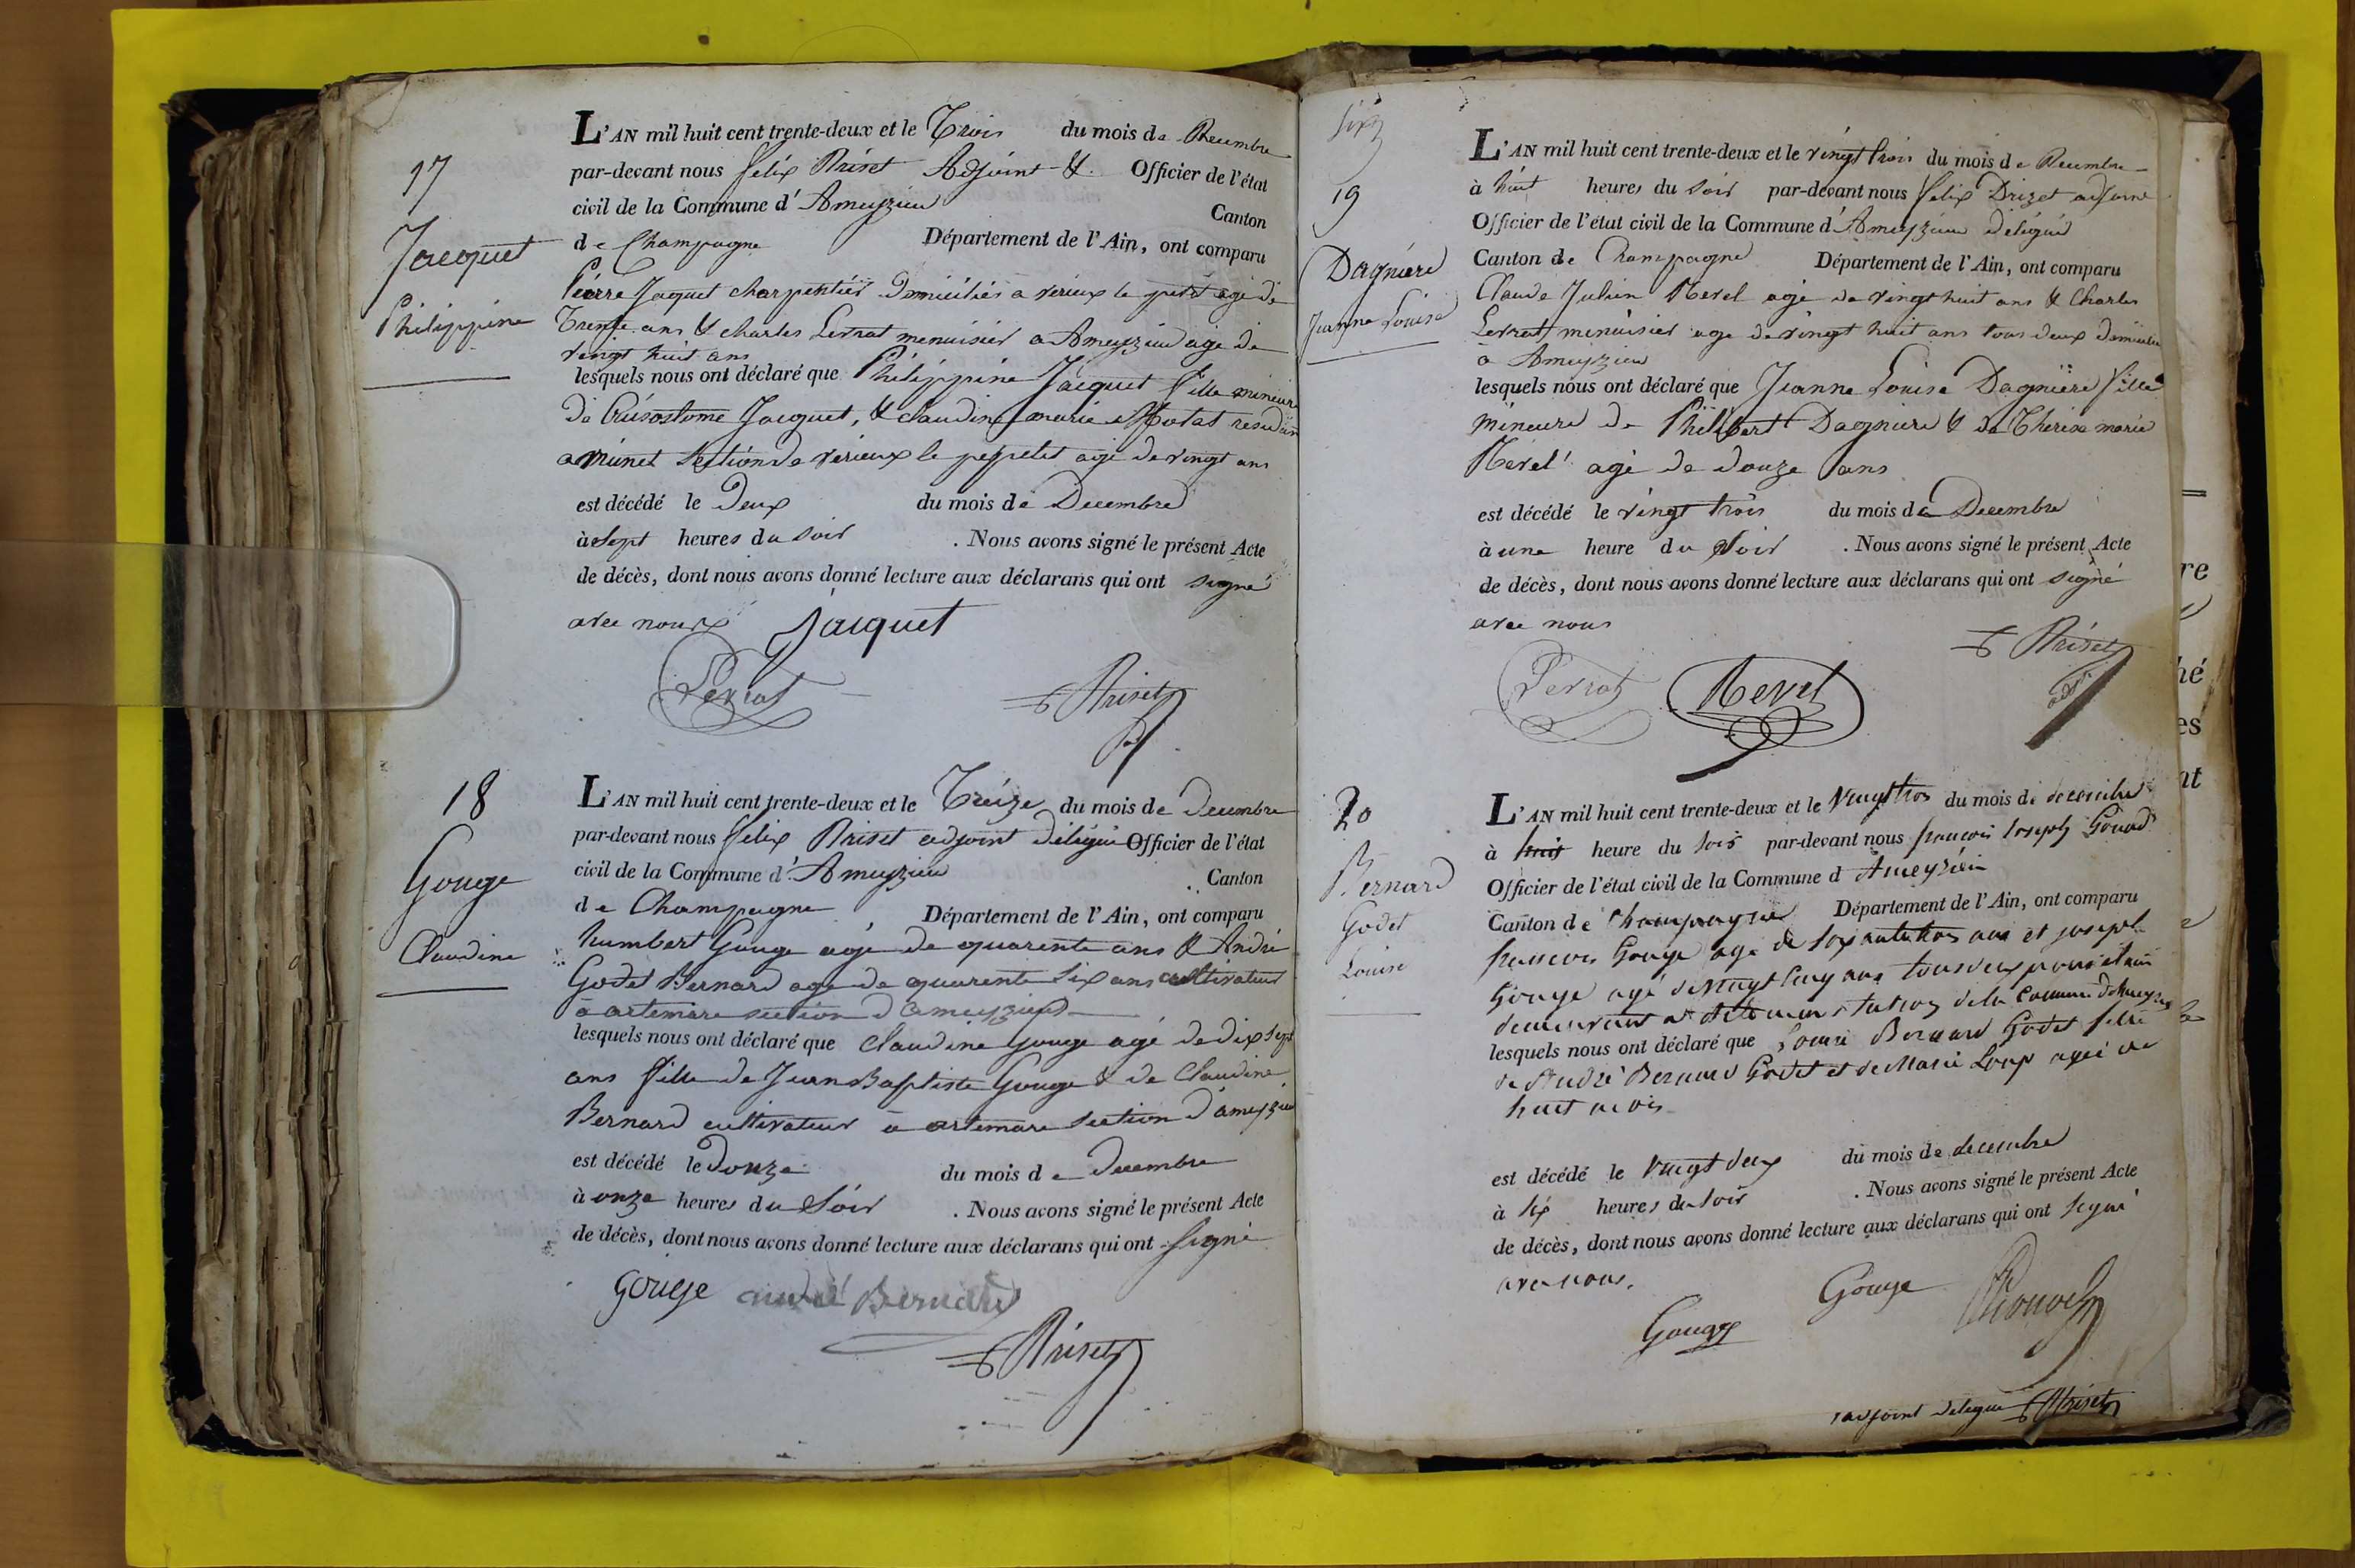 17
Jacquet
Philippine
L'AN mil huit cent trente-deux et le Trois du mois de Decembre
par-devant nous felix Driset Adjoint &. Officier de l'état
civil de la Commune d'Ameyzieu Canton
de Champagne Département de l'Ain, ont comparu
Pierre Jaquet charpentier domiciliés a verieux le petit agé de
Trente ans & charles Perrat menuisier a Ameyzieu agé de
vingt huit ans
lesquels nous ont déclaré que Philippine Jacquet fille mineure
de Crisostome Jacquet, & claudine marie
a munet Section de verieux le petit agé de vingt ans
est décédé le Deux du mois de Decembre
à Sept heures du soir . Nous avons signé le présent Acte
de décès, dont nous avons donné lecture aux déclarans qui ont signé
avec nous Jacquet
Perrat Driset
18
Gouge
Claudine
L'AN mil huit cent trente-deux et le Treize du mois de Decembre
par-devant nous felix Driset adjoint délégué Officier de l'état
civil de la Commune d'Ameyzieu Canton
de Champagne Département de l'Ain, ont comparu
humbert Gouge agé de quarente ans & André
Godet Bernard agé de quarente six ans cultivateur
à artemare section d'ameyzieu
lesquels nous ont déclaré que Claudine Gouge agé de dix sept
ans fille de Jean Baptiste Gouge & de Claudine
Bernard cultivateur a artemare section d'ameyzieu
est décédé le Douze du mois de Decembre
à onze heures du Soir . Nous avons signé le présent Acte
de décès, dont nous avons donné lecture aux déclarans qui ont signé
Gouge andré Bernard
Driset
19
Dagniere
Jeanne Louise
L'AN mil huit cent trente-deux et le vingt trois du mois de Decembre
à huit heures du soir par-devant nous felix Drizet adjoint
Officier de l'état civil de la Commune d'Ameyzieu délégué
Canton de Champagne Département de l'Ain, ont comparu
Claude Julien Mevel agé de vingt huit ans & Charles
Perrat menuisier agé de vingt huit ans tous deux domicilie
à Ameyzieu
lesquels nous ont déclaré que Jeanne Louise Dagniere fille
mineure de Philibert Dagniere & de Thérèse marie
Mevel agé de douze ans
est décédé le vingt trois du mois de Decembre
à une heure du Soir . Nous avons signé le présent Acte
de décès, dont nous avons donné lecture aux déclarans qui ont signé
avec nous
Perrat Mevel Driset
20
Bernard
Godet
Louise
L'AN mil huit cent trente-deux et le vingt trois du mois de decembre
à heure du soir par-devant nous francois Joseph
Officier de l'état civil de la Commune d Ameyzieu
Canton de Champagne Département de l'Ain, ont comparu
francois Gouge agé de soixante trois ans et joseph
Gouge agé de vingt cinq ans tous deux proprietaire
demeurant a Artemare section de la commune d'Ameyzieu
lesquels nous ont déclaré que Louise Bernard Godet fille
de André Bernard Godet et de Marie Loup agée de
huit mois
est décédé le vingt deux du mois de decembre
à six heures du soir . Nous avons signé le présent Acte
de décès, dont nous avons donné lecture aux déclarans qui ont signé
avec nous.
Gouge
Gouge
adjoint delegué Driset